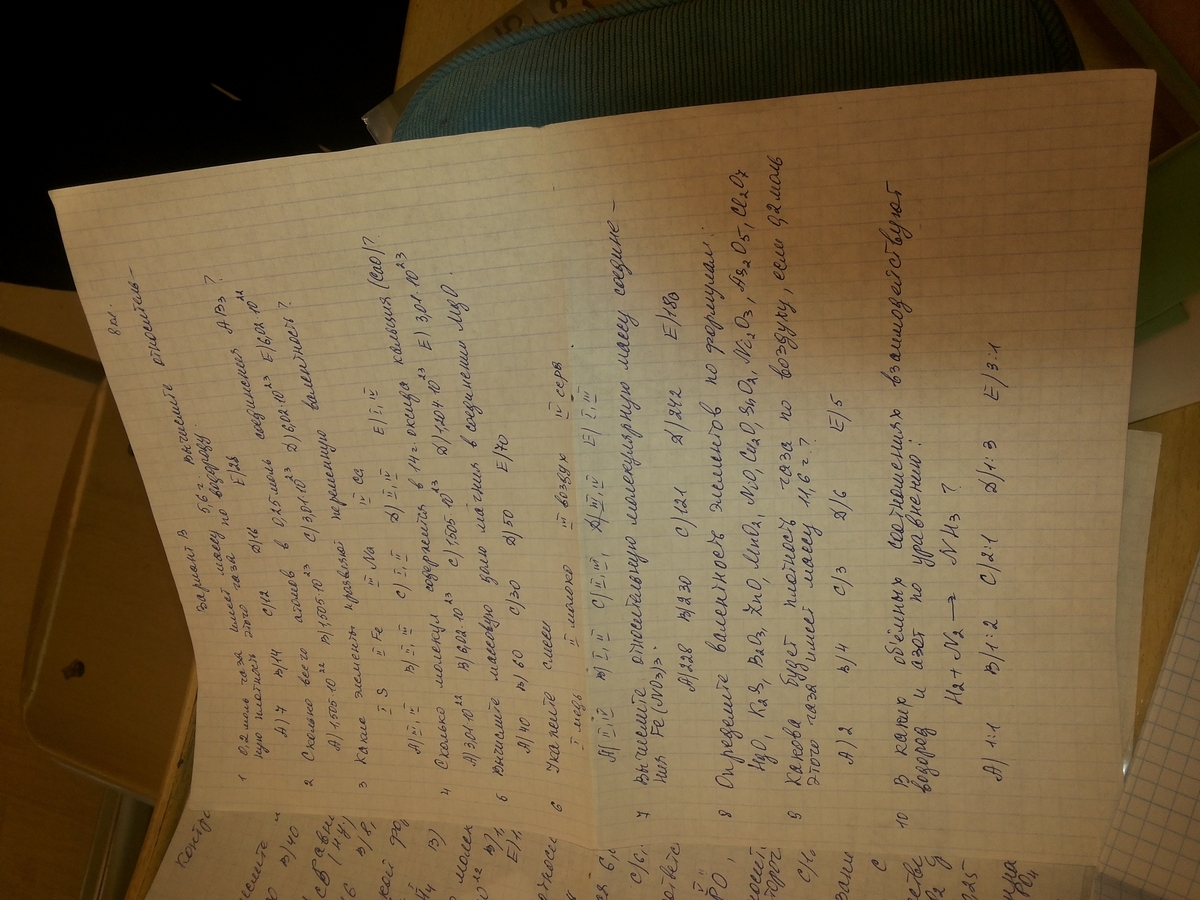 8 кл.
Вариант В
1 0,2 моль газа имеет массу 5,6 г. Вычислите относитель-
ную плотность этого газа по водороду.
А) 7 В) 14 С) 12 Д) 16 Е) 28
2 Сколько всего атомов в 0,25 моль соединения АВ3 ?
А) 1,505·10²² В) 1,505·10²³ С) 3,01·10²³ Д) 6,02·10²³ Е) 6,02·10²²
3 Какие элементы проявляют переменную валентность?
I S II Fe III Na IV Ca
А) I, IV В) II, III С) I, II Д) II, IV Е) I, IV
4 Сколько молекул содержится в 14 г. оксида кальция (CaO)?
А) 3,01·10²² В) 6,02·10²³ С) 1,505·10²³ Д) 1,204·10²³ Е) 3,01·10²³
5 Вычислите массовую долю магния в соединении MgO.
А) 40 В) 60 С) 30 Д) 50 Е) 70
6 Укажите смеси
I медь II молоко III воздух IV сера
А) I, IV В) I, II С) II, III Д) III, IV Е) I, III
7 Вычислите относительную молекулярную массу соедине-
ния Fe(NO3)3:
А) 228 В) 230 С) 121 Д) 242 Е) 180
8 Определите валентность элементов по формулам:
HgO, K2S, B2O3, ZnO, MnO2, NiO, Cu2O, SnO2, Ni2O3, As2O5, Cl2O7
9 Какова будет плотность газа по воздуху, если 0,2 моль
этого газа имеет массу 11,6 г.?
А) 2 В) 4 С) 3 Д) 6 Е) 5
10 В каких объёмных соотношениях взаимодействуют
водород и азот по уравнению:
H2 + N2 → NH3 ?
А) 1:1 В) 1:2 С) 2:1 Д) 1:3 Е) 3:1